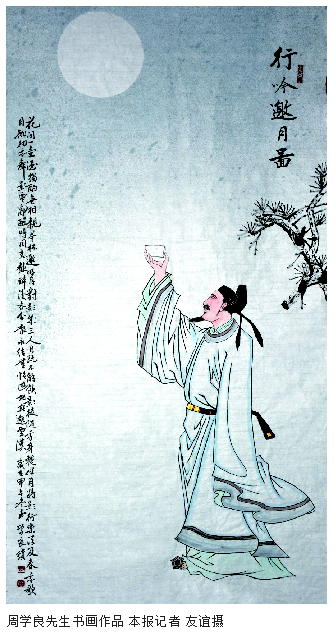 行吟邀月啚
花间一壶酒独酌无相亲举杯邀明月对影成三人月既不解饮影徒随我身暂伴月将影行乐须及春我歌
月徘徊我舞影零乱醒时同交欢醉后各分散永结无情游相期邈云汉
周学良先生书画作品 本报记者 友谊摄